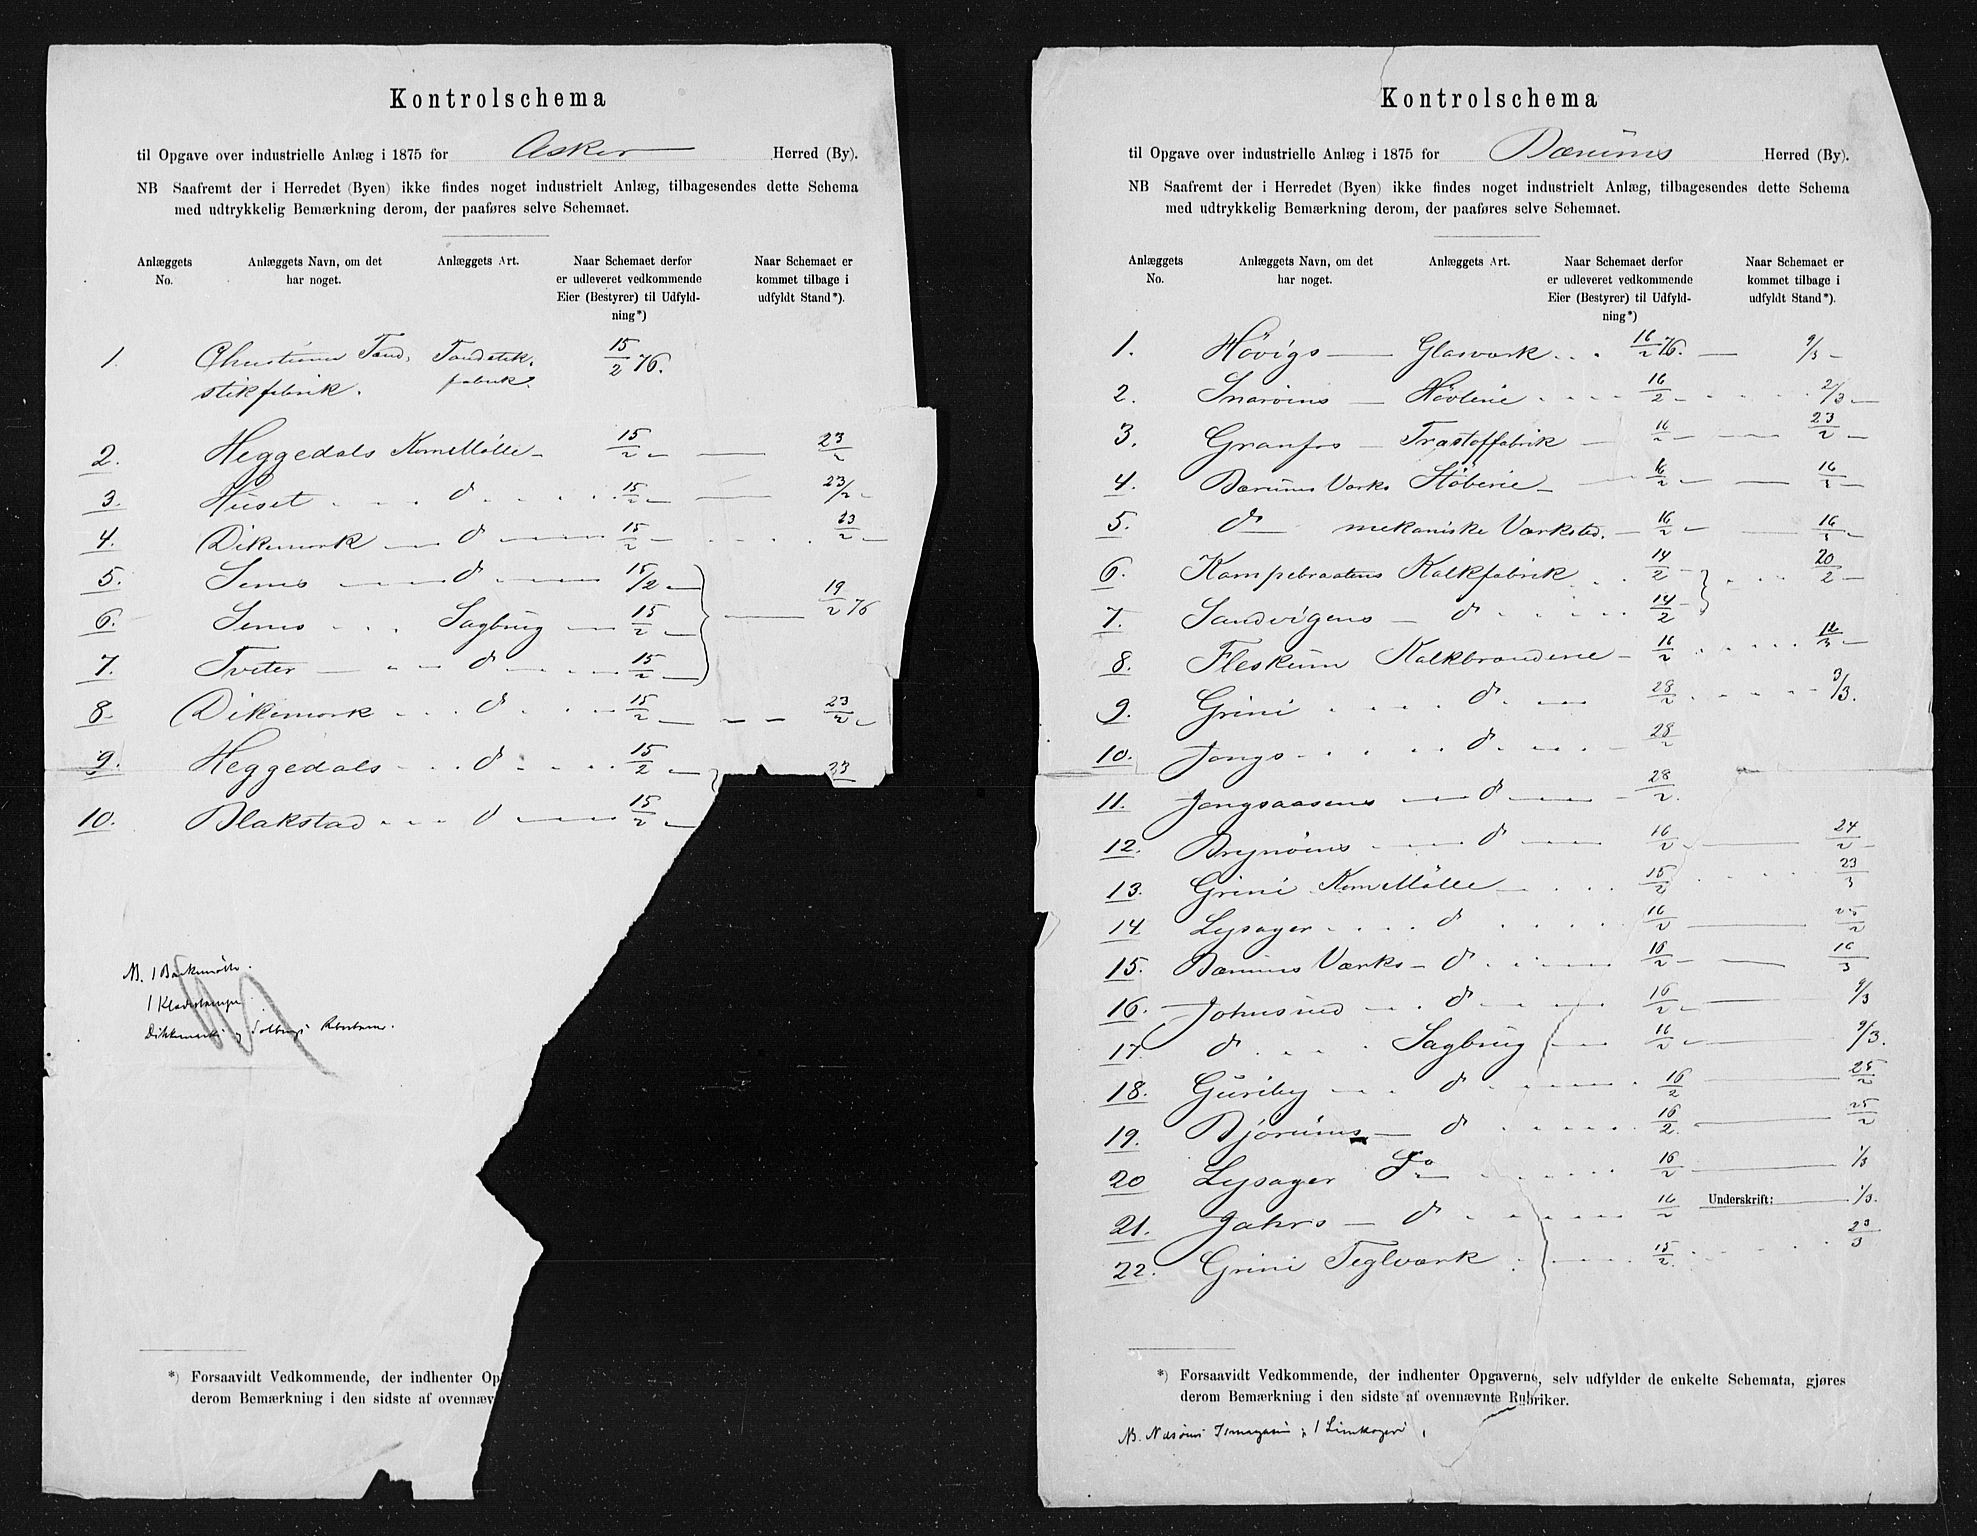 Kontrolschema
til Opgave over industrielle Anlæg i 1875 for Asker Herred (By).
NB Saafremt der i Herredet (Byen) ikke findes noget industrielt Anlæg, tilbagesendes dette Schema
med udtrykkelig Bemærkning derom, der paaføres selve Schemaet.
Anlæggets No. Anlæggets Navn, om det har noget. Anlæggets Art. Naar Schemaet derfor er udleveret vedkommende Eier (Bestyrer) til Udfyldning*) Naar Schemaet er kommet tilbage i udfyldt Stand*).
1. Tand- Tandstik- 15/2 76.
stikfabrik. fabrik
2. Heggedals KornMölle 15/2 — 23/2
3. Huset . . . d . . . 15/2 — 23/2 —
4. Dikemark — d — 15/2 — . . . 23/2 —
5. Sems — d — 15/2 —
6. Sems . . . Sagbrug — 15/2 — 19/2 76
7. Tveter — d — 15/2 —
8. Dikemark . . . d . . . 15/2 — 23/2 —
9. Heggedals . . . d . . . 15/2 — 23
10. Blakstad . . . d — 15/2 —
NB. 1 Barkemölle.
1
Dikkemarks og
*) Forsaavidt Vedkommende, der indhenter Op
derom Bemærkning i den sidste af ovennæv
Kontrolschema
til Opgave over industrielle Anlæg i 1875 for Bærums Herred (By).
NB Saafremt der i Herredet (Byen) ikke findes noget industrielt Anlæg, tilbagesendes dette Schema
med udtrykkelig Bemærkning derom, der paaføres selve Schemaet.
Anlæggets No. Anlæggets Navn, om det har noget. Anlæggets Art. Naar Schemaet derfor er udleveret vedkommende Eier (Bestyrer) til Udfyldning*) Naar Schemaet er kommet tilbage i udfyldt Stand*).
1. Hövigs — Glasværk . . . 16/2 76. — 9/3 —
2. Snaröens — Hövlerie . . . 16/2 — . . . 2/3 —
3. Granfos — Træstoffabrik — 16/2 — 23/2 —
4. Bærums Værks Stöberie — 16/2 — 16/3 —
5. do — mekaniske Værksted. — 16/2 — 16/3 —
6. Kampebraatens Kalkfabrik . . . 14/2 — . . . 20/2 —
7. Sandvigens — d . . . 14/2 —
8. Fleskum Kalkbrænderie — 16/2 . . . 12/3 —
9. Grini . . . d . — 28/2 . . . 3/3.
10. Jongs . . . d . — 28/2
11. Jongsaasens — d — 28/2.
12. Brynöens — d — 16/2 — 24/2 —
13. Grini KornMölle — 15/2 . . . 23/3
14 Lysager . . . d . . . 16/2 — 25/2
15. Bærums Værks — d . . . 16/2 — 16/3
16. Johnsrud — d — 16/2 — 9/3
17. d . . . Sagbrug — 16/2 — 9/3.
18. Guriby — d — 16/2 — 25/2
19. Bjørums — d . . . 16/2. — 25/2
20 Lysager do — 16/2 — 1/3
21. Jahrs — d . . . 16/2 Underskrift: — 1/3.
22. Grini Teglværk . . . 15/2. . . . 23/3
*) Forsaavidt Vedkommende, der indhenter Opgaverne, selv udfylder de enkelte Schemata, gjøres
derom Bemærkning i den sidste af ovennævnte Rubriker.
NB. 1